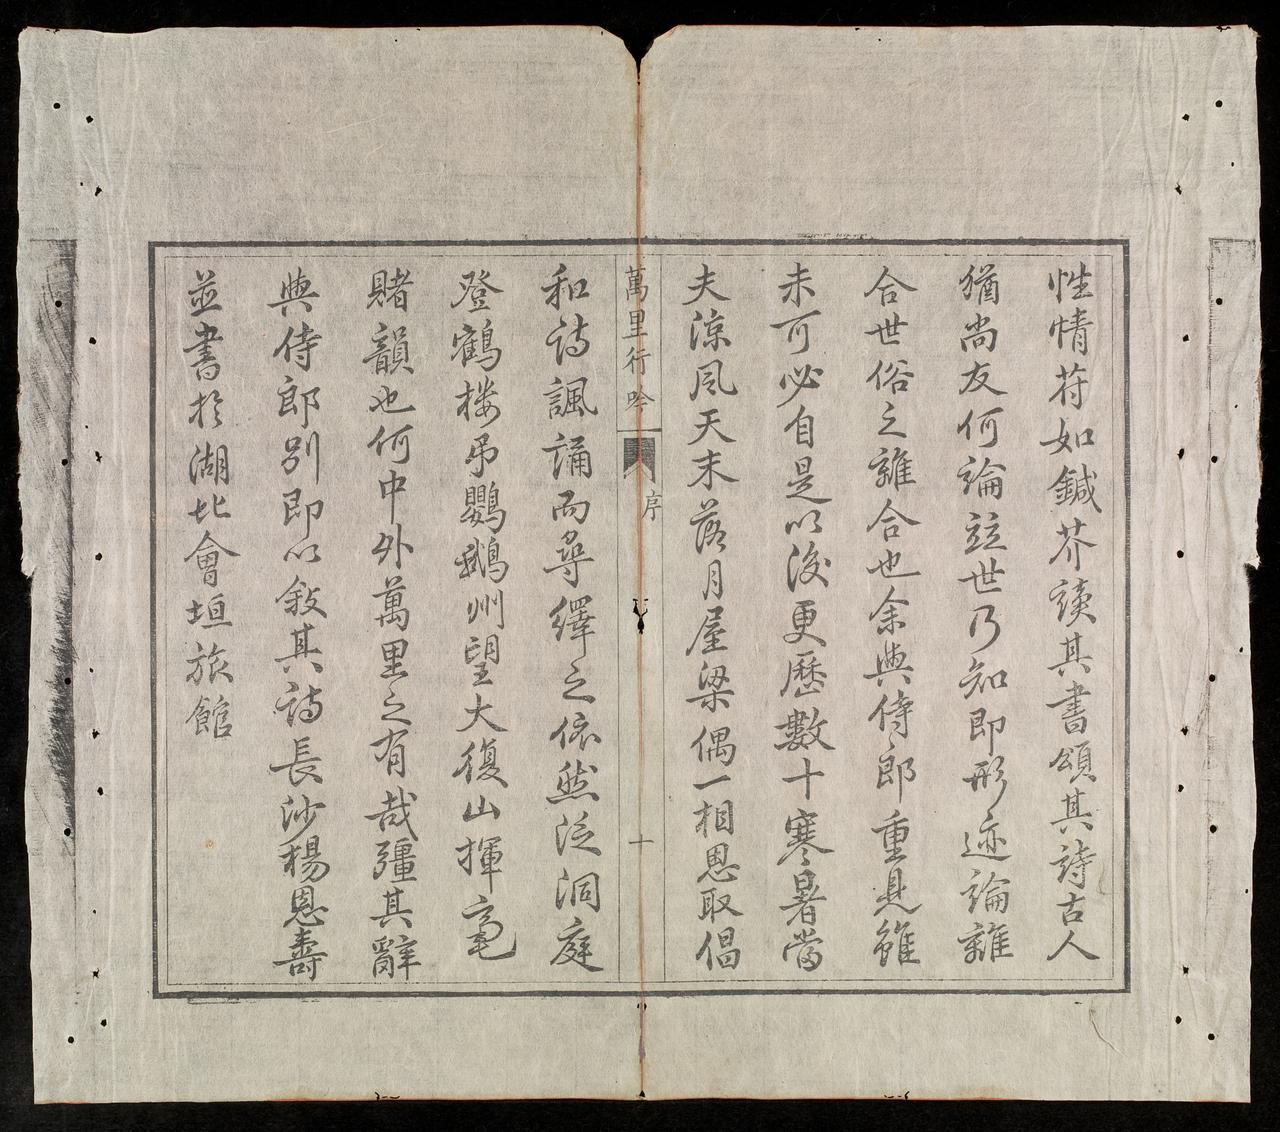 性情苻如鍼芥讀其書頌其詩古人
猶尚友何論竝世乃知即形迹論離
合世俗之離合也余與侍郎重見雖
未可必自是以後更歷數十寒暑當
夫涼風天末落月屋梁偶一相思取倡
萬里行吟
序
十
和詩諷誦而尋繹之依然泛洞庭
登鶴樓弔鸚鵡州望大復山揮毫
賭韻也何中外萬里之有哉彊其辭
與侍郎別即以敍其詩長沙楊恩壽
並書於湖北會垣旅館